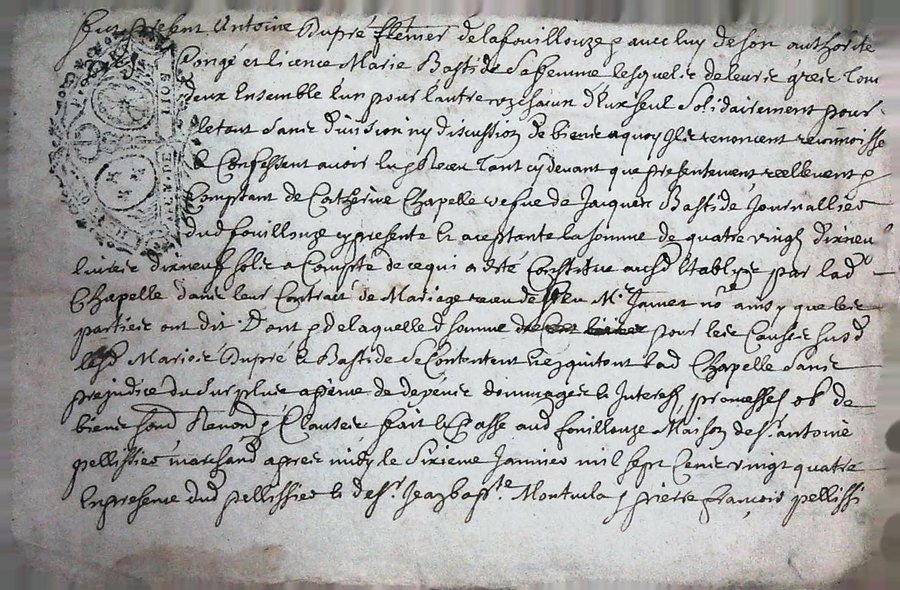 fut present Antoine Dupré fermier de la fouillouze & avec luy de son authorité
Congé et licence Marie Bastide sa femme lesquels de leurs grés tous
deux Ensemble lun pour lautre un chacun d'Eux seul Solidairement pour
le tout sans division ny discussion de biens a quoy ils renoncent
& Confessent avoir tant cy devant que presentement reellement &
Comptant de Catherine Chapelle vefve de Jacques Bastide Journallier
dud fouillouze cy presente & aceptante la somme de quatre vingt dixneuf
livres dixneuf sols a Compte de ce qui a été Constitué par lad
Chapelle dans leur Contrat de Mariage receu de feu Me Jamet nore ainsy que les
parties ont dit Dont & de laquelle d somme pour les Causes susd
lesd Mariés Dupré & Bastide se Contentent quitont lad Chapelle sans
prejudice du surplus a peine de depens dommages & Interests promesses ob de
biens Renond & Clauses fait & Passé aud fouillouze Maison de sr antoine
pellissier marchand apres midy le sixieme Janvier mil sept Cens vingt quatre
En presence dud pellissier & de sr Jean bapte Montuela & pierre françois pellissi